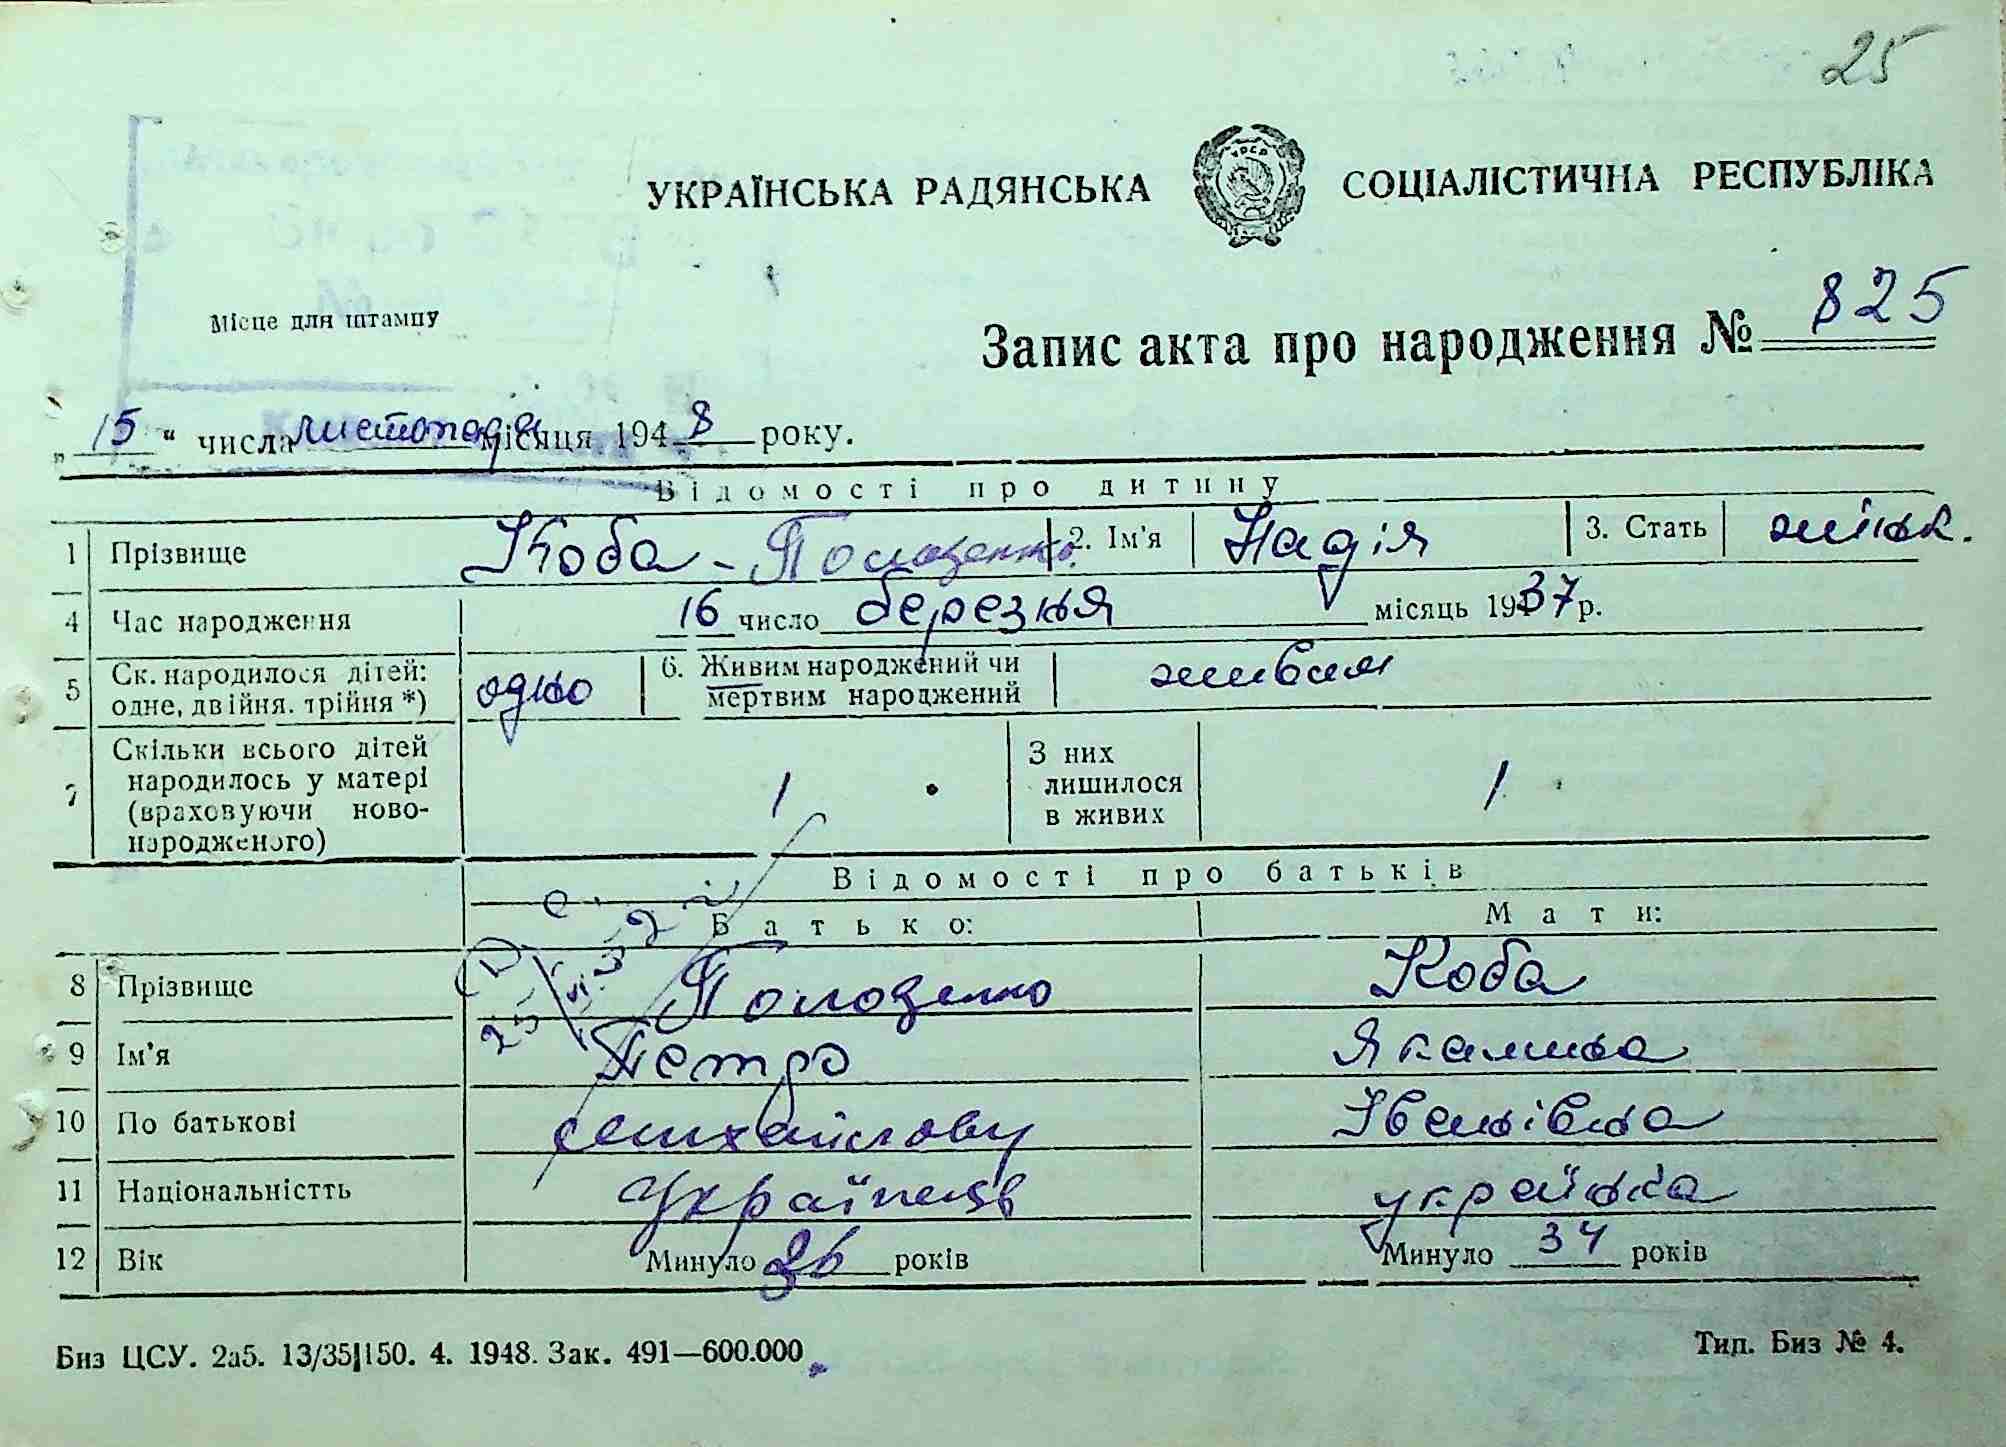 25
УКРАЇНСЬКА РАДЯНСЬКА СОЦІАЛІСТИЧНА РЕСПУБЛІКА
УРСР
Місце для штампу
Запис акта про народження № 825
„15“ числа листопада місяця 1948 року.
Відомості про дитину
1 Прізвище Коба - Полоценко 2. Ім'я Надія 3. Стать жіноч.
4 Час народження 16 число березня місяць 1937 р.
5 Ск. народилося дітей: одне, двійня, трійня *) одно 6. Живим народжений чи мертвим народжений живим
7 Скільки всього дітей народилось у матері (враховуючи новонародженого) 1 З них лишилося в живих 1
Відомості про батьків
Батько: Мати:
8 Прізвище Полоценко Коба
9 Ім'я Петро Якилина
10 По батькові Іванівна
11 Національністть Українець українка
12 Вік Минуло 36 років Минуло 34 років
Биз ЦСУ. 2а5. 13/35|150. 4. 1948. Зак. 491—600.000 Тип. Биз № 4.